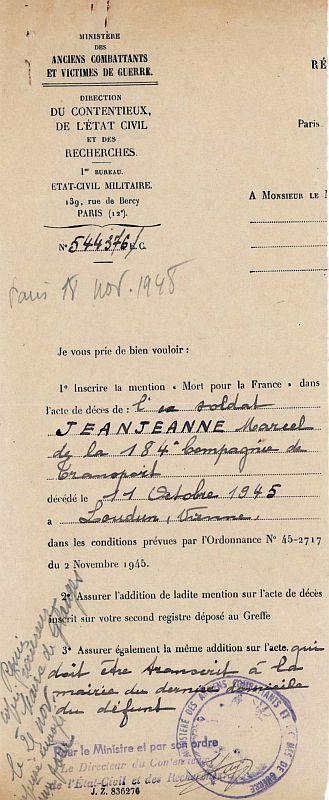 MINISTÈRE
DES
ANCIENS COMBATTANTS
ET VICTIMES DE GUERRE.
RÉ
DIRECTION
DU CONTENTIEUX,
DE L'ÉTAT CIVIL
ET DES
RECHERCHES.
Paris
1er BUREAU.
ETAT-CIVIL MILITAIRE.
139, rue de Bercy
PARIS (12e).
A MONSIEUR LE M
N° 544376/E.C.
Paris 18 nov. 1948
Je vous prie de bien vouloir :
1° Inscrire la mention « Mort pour la France » dans
l'acte de décès de : l'ex soldat
JEANJEANNE Marcel
de la 184e Compagnie de
Transport
décédé le 11 Octobre 1945
a Loudun, Vienne,
dans les conditions prévues par l'Ordonnance N° 45-2717
du 2 Novembre 1945.
2° Assurer l'addition de ladite mention sur l'acte de décès
inscrit sur votre second registre déposé au Greffe
3° Assurer également la même addition sur l'acte. qui
doit être transcrit à la
mairie du dernier domicile
du défunt
MINISTÈRE DES ANCIENS COMBATTANTS ET VICTIMES DE GUERRE
Pour le Ministre et par son ordre
Le Directeur du Contentieux
de l'État-Civil et des Recherches
J. Z. 836276